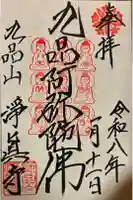 奉拝
令和八年
一月十一日
九品阿弥陀佛
九品山
淨真寺